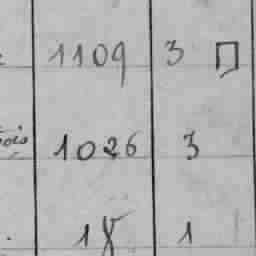 1109 3
ois 1026 3
18 1